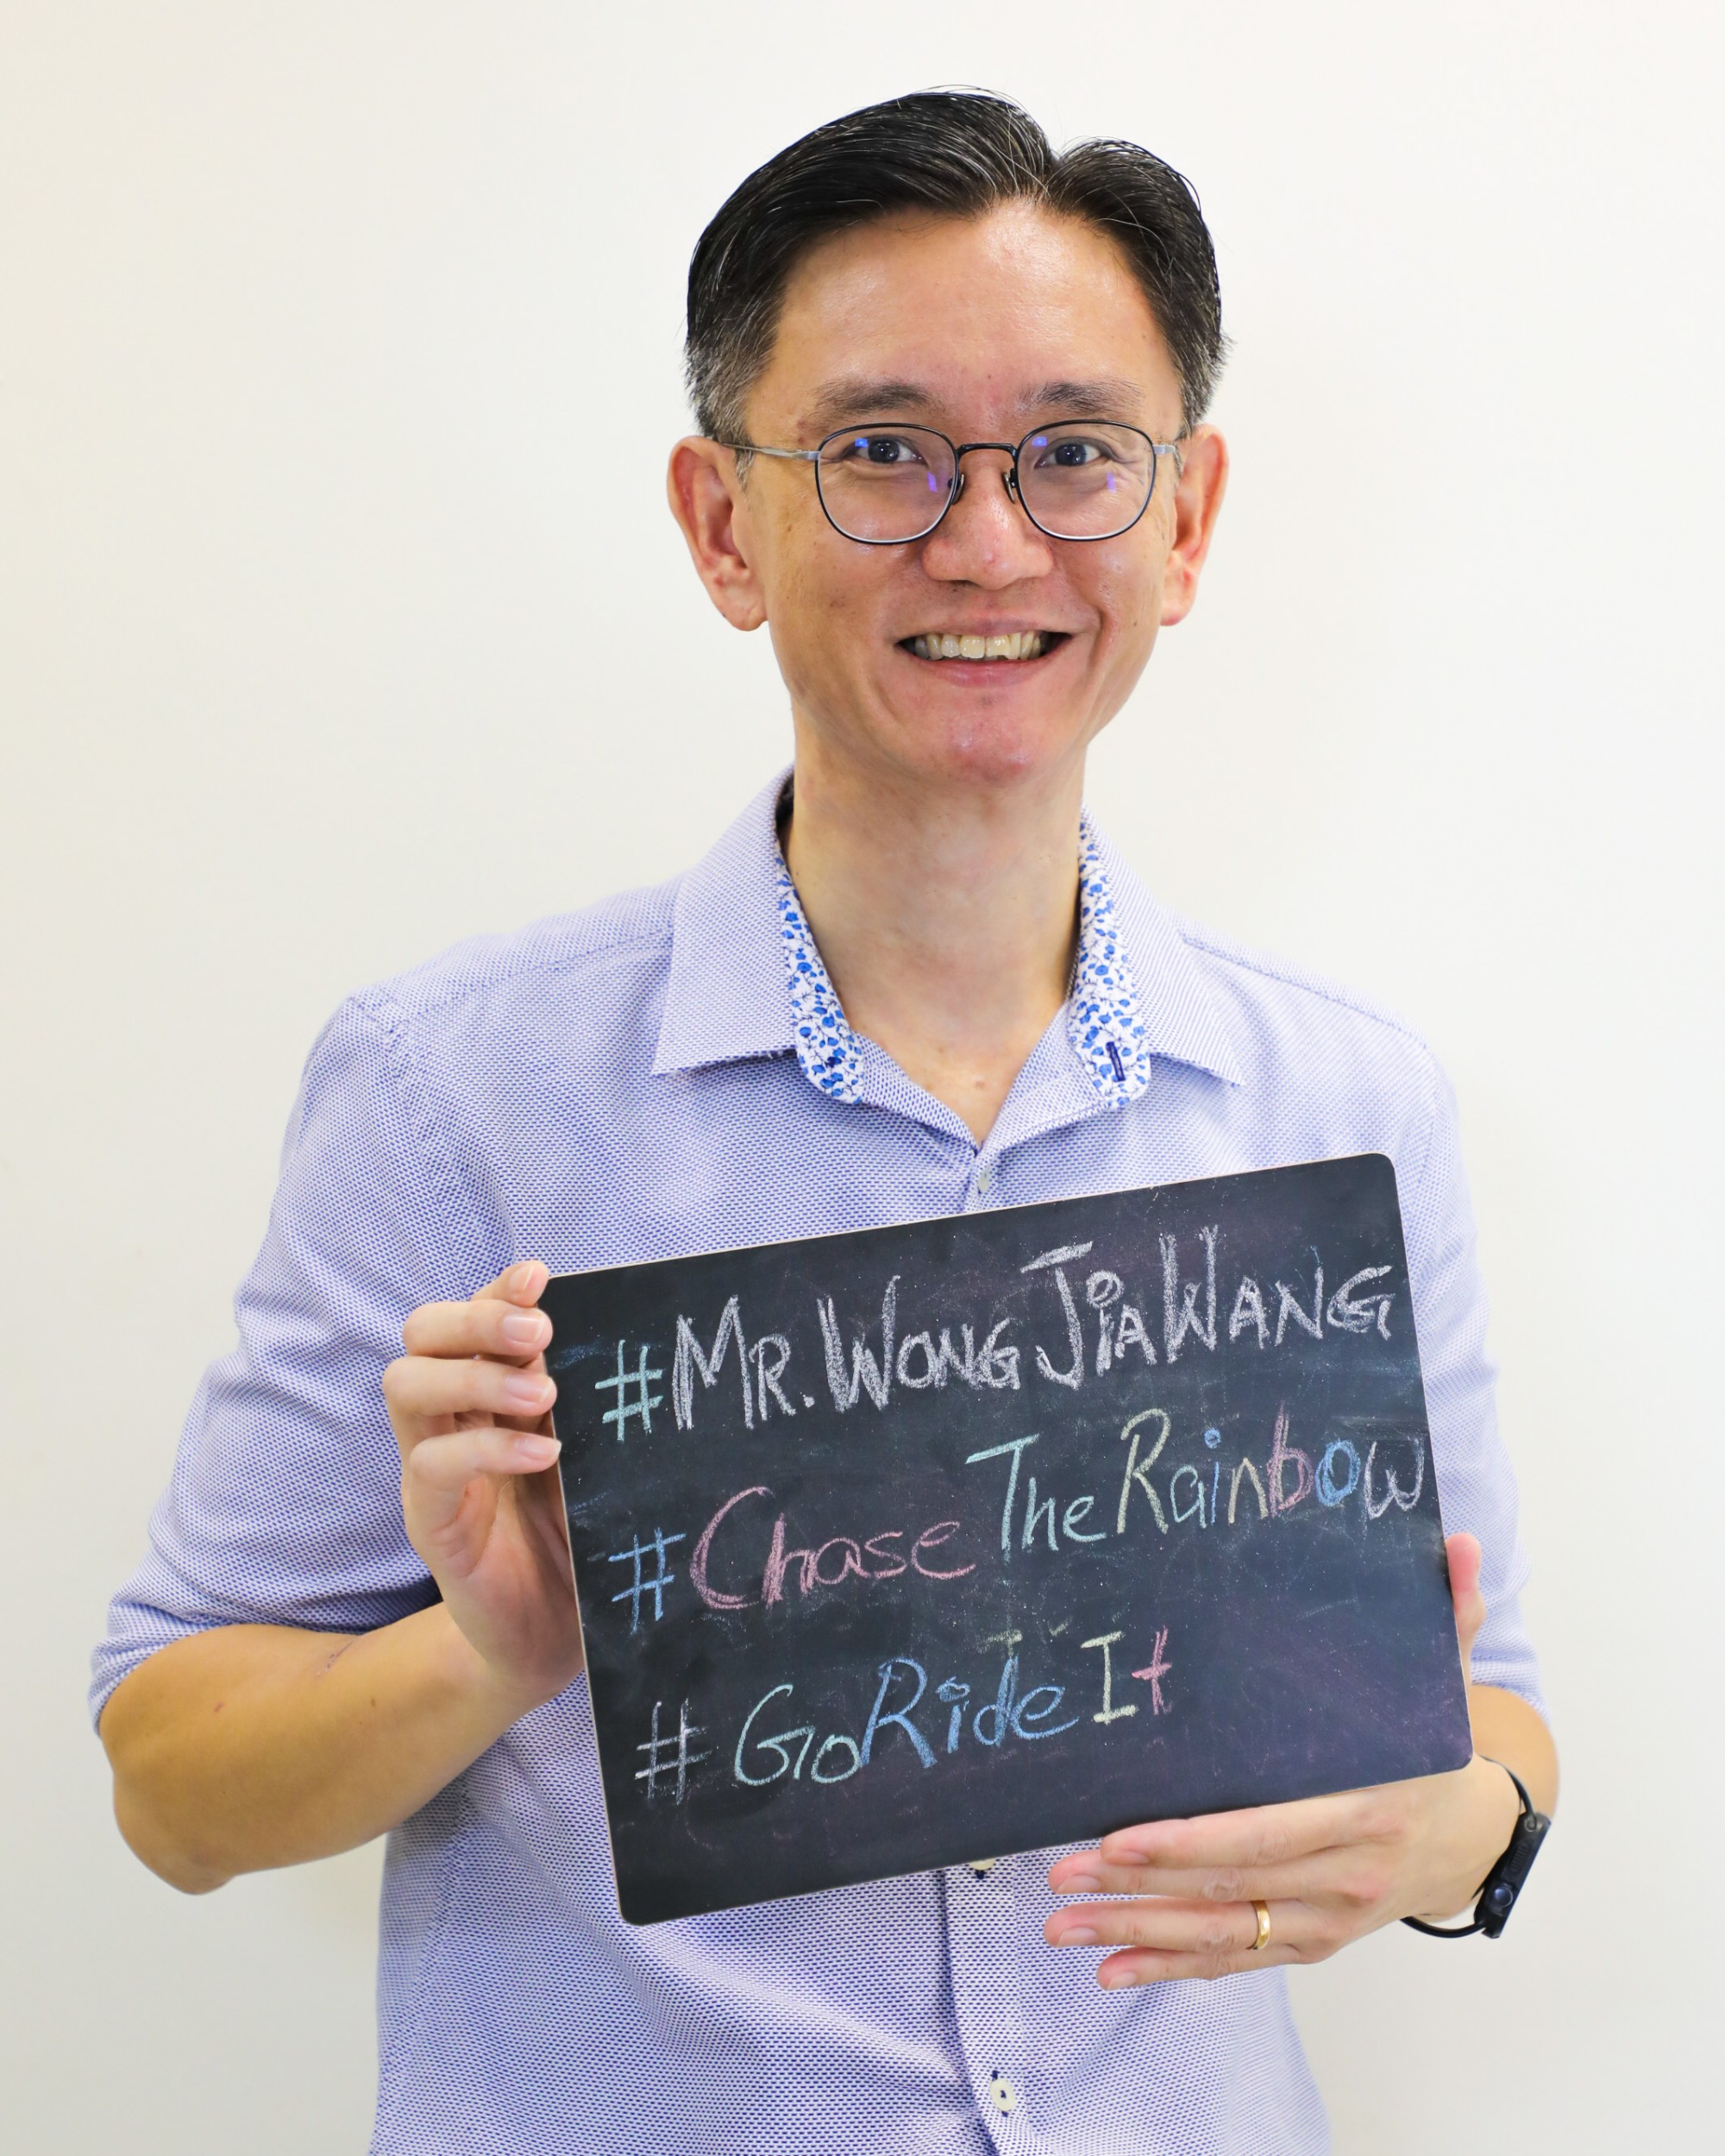 #MR. WONG JiA WANG
#Chase The Rainbow
#GoRide It